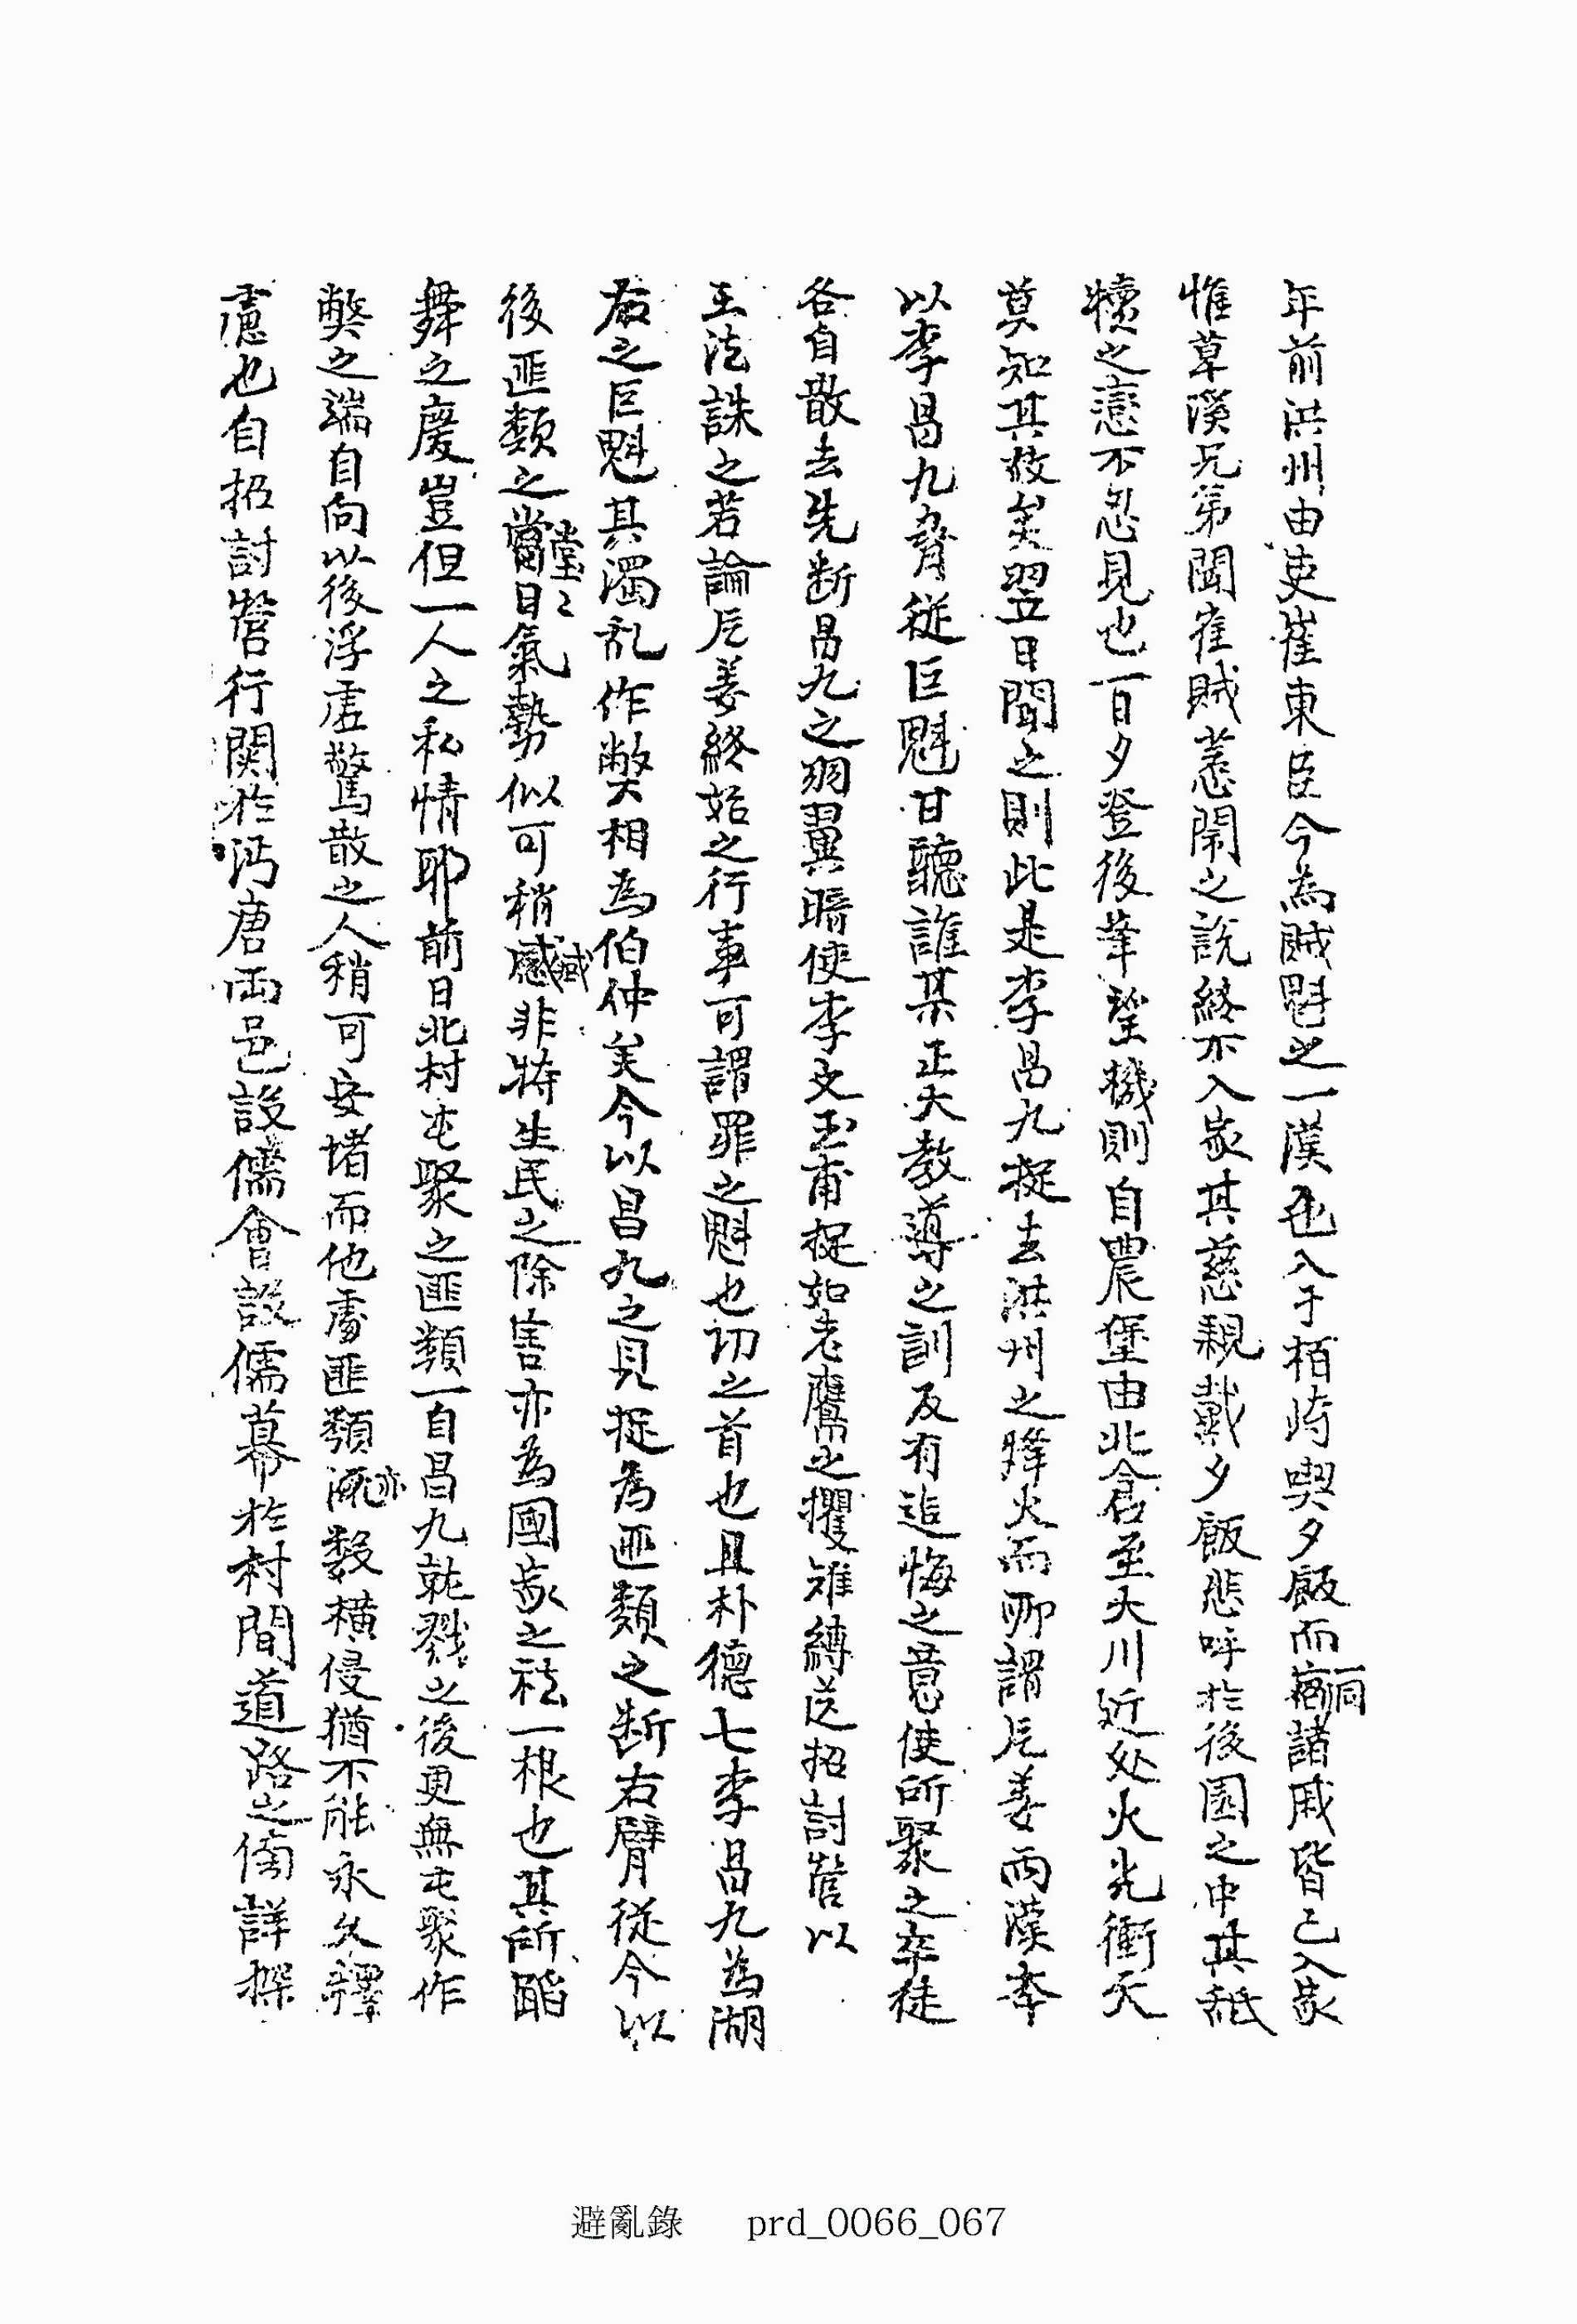 年前洪州由吏崔東臣今為賊魁之一漢也入于栢峙喫夕飯而一洞諸戚皆已入家
惟草溪兄弟聞崔賊恚鬧之說終不入家其慈親戴夕飯悲呼於後園之中其舐
犢之戀不忍見也一日夕登後峯望機則自農堡由北倉至大川近处火光衝天
莫知其故矣翌日聞之則此是李昌九捉去洪州之烽火而所謂片姜兩漢本
以李昌九脅從巨魁甘聽誰某正大教導之訓反有追悔之意使所聚之卒徒
各自散去先断昌九之羽翼暗使李文玉甫捉如老鷹之攫雉縛送招討營以
王法誅之若論片姜終始之行事可謂罪之魁也切之首也且朴德七李昌九為湖
右之巨魁其濁乱作弊相為伯仲矣今以昌九之見捉為匪類之断右臂從今以
後匪類之堂〻日氣勢似可稍減非特生民之除害亦為國家之祛一根也其所蹈
舞之慶豈但一人之私情耶前日北村屯聚之匪類一自昌九就戮之後更無屯聚作
弊之端自向以後浮虛驚散之人稍可安堵而他處匪類亦數橫侵猶不能永久釋
慮也自招討營行関於沔唐兩邑設儒會設儒幕於村間道路之傍詳探
避亂錄 prd_0066_067